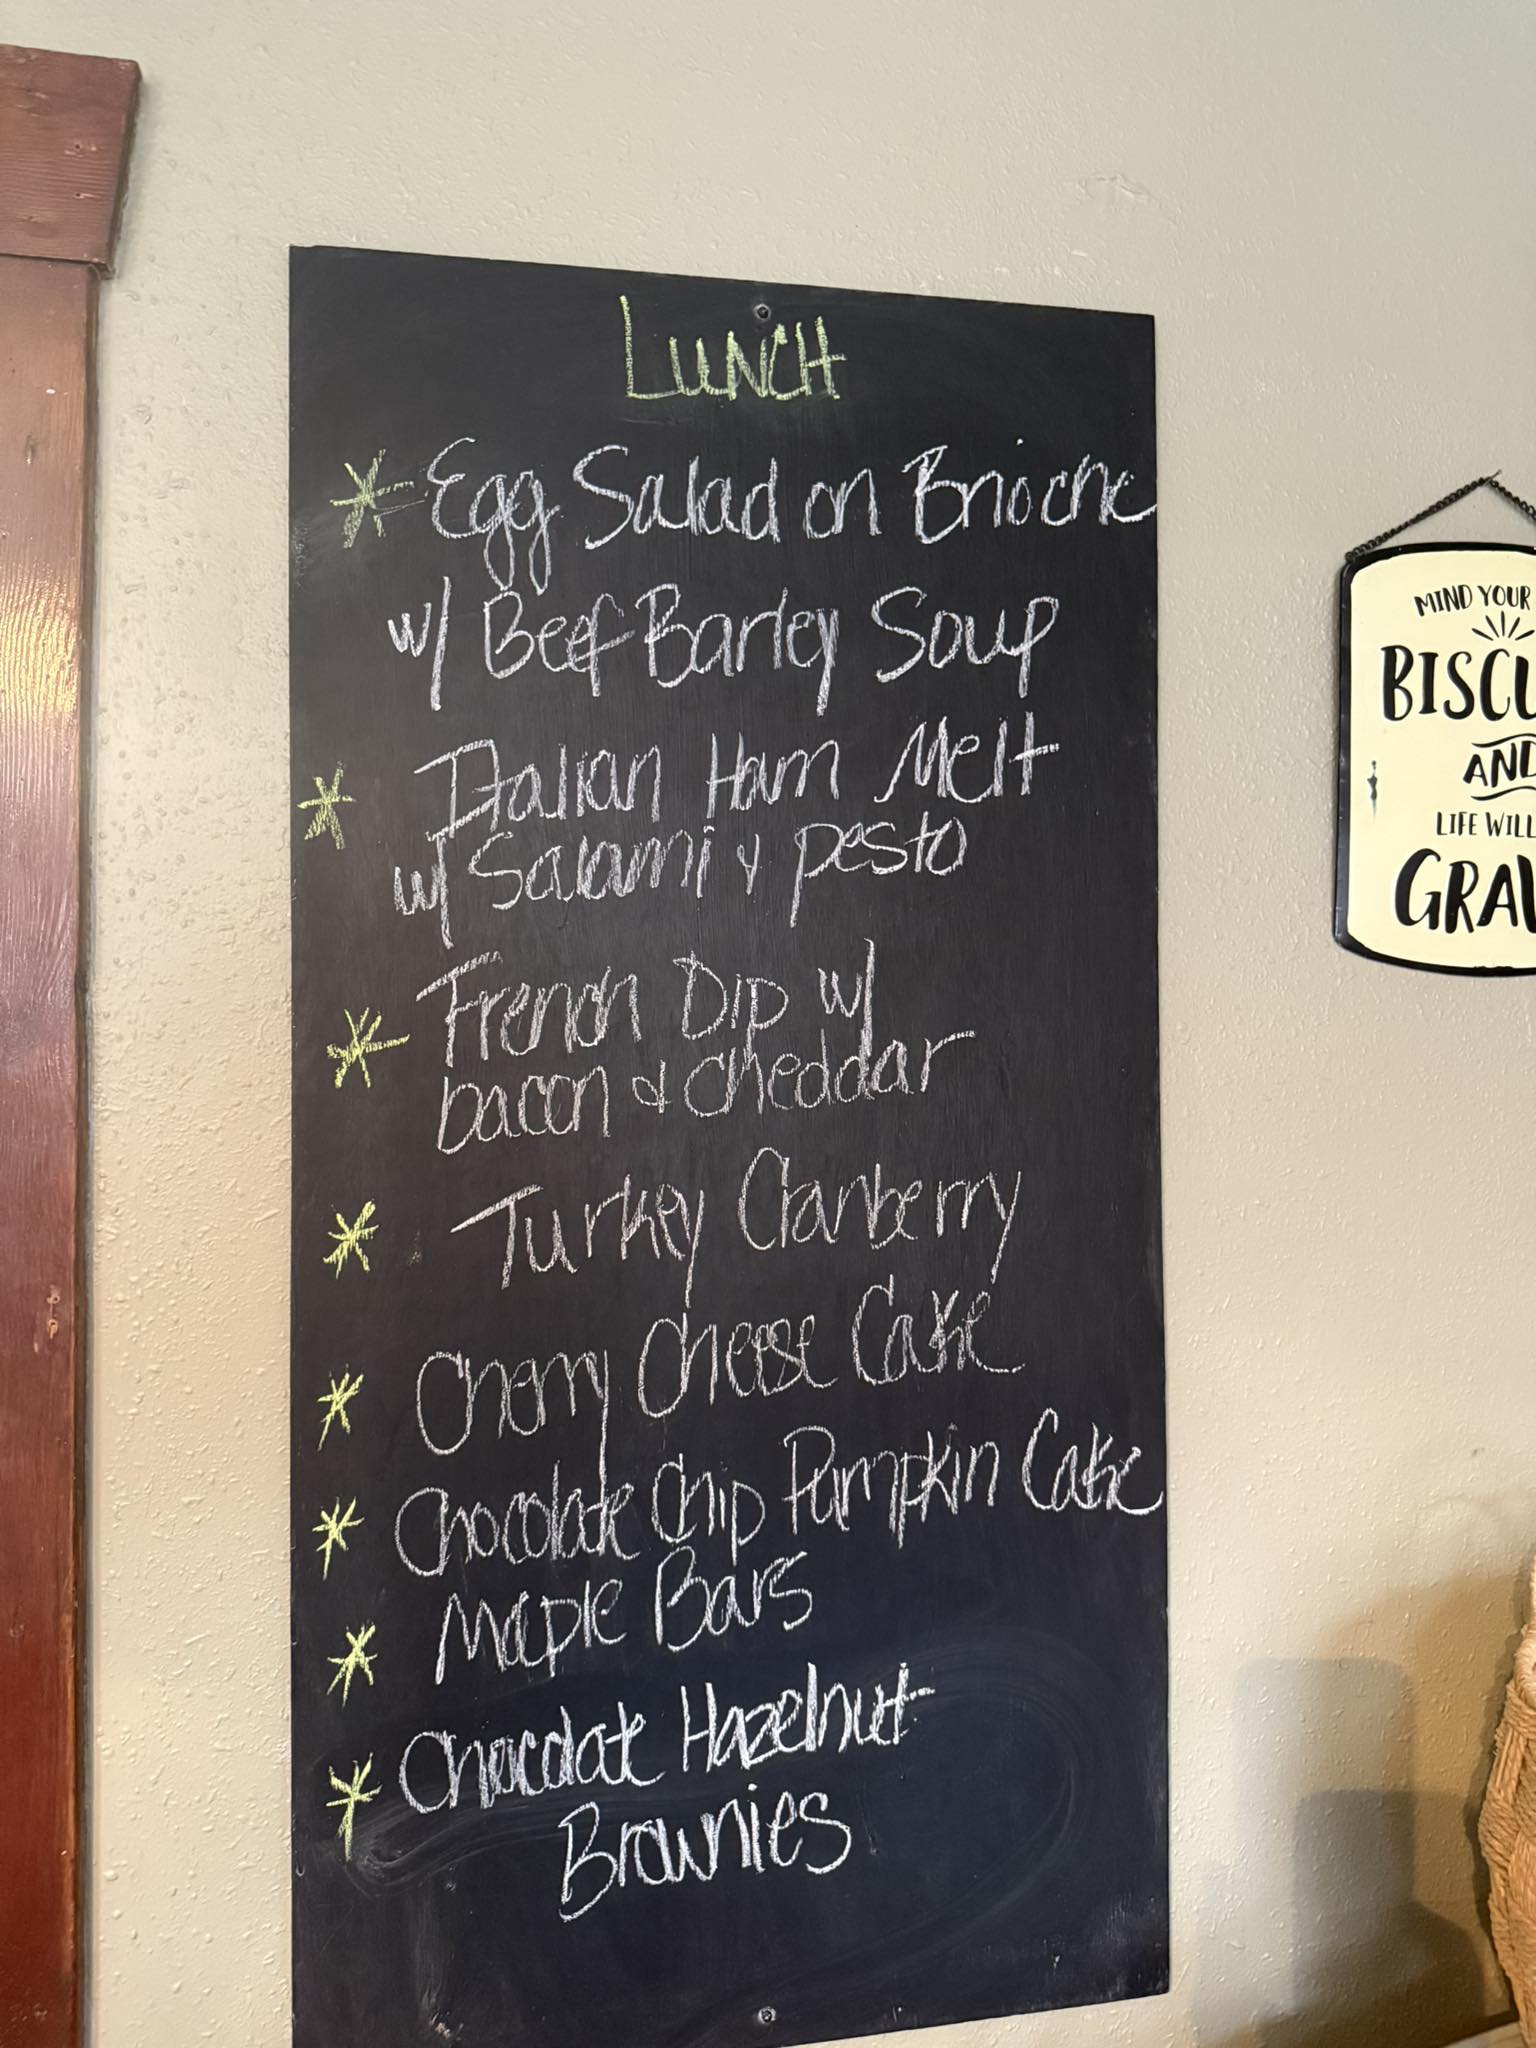 LUNCH
* Egg Salad on Brioche
w/ Beef Barley Soup
* Italian Ham Melt
w/ Salami & pesto
* French Dip w/
bacon & cheddar
* Turkey Cranberry
* Cherry Cheese Cake
* Chocolate Chip Pumpkin Cake
* Maple Bars
* Chocolate Hazelnut
Brownies
MIND YOUR
BISCU
AND
LIFE WILL
GRAV